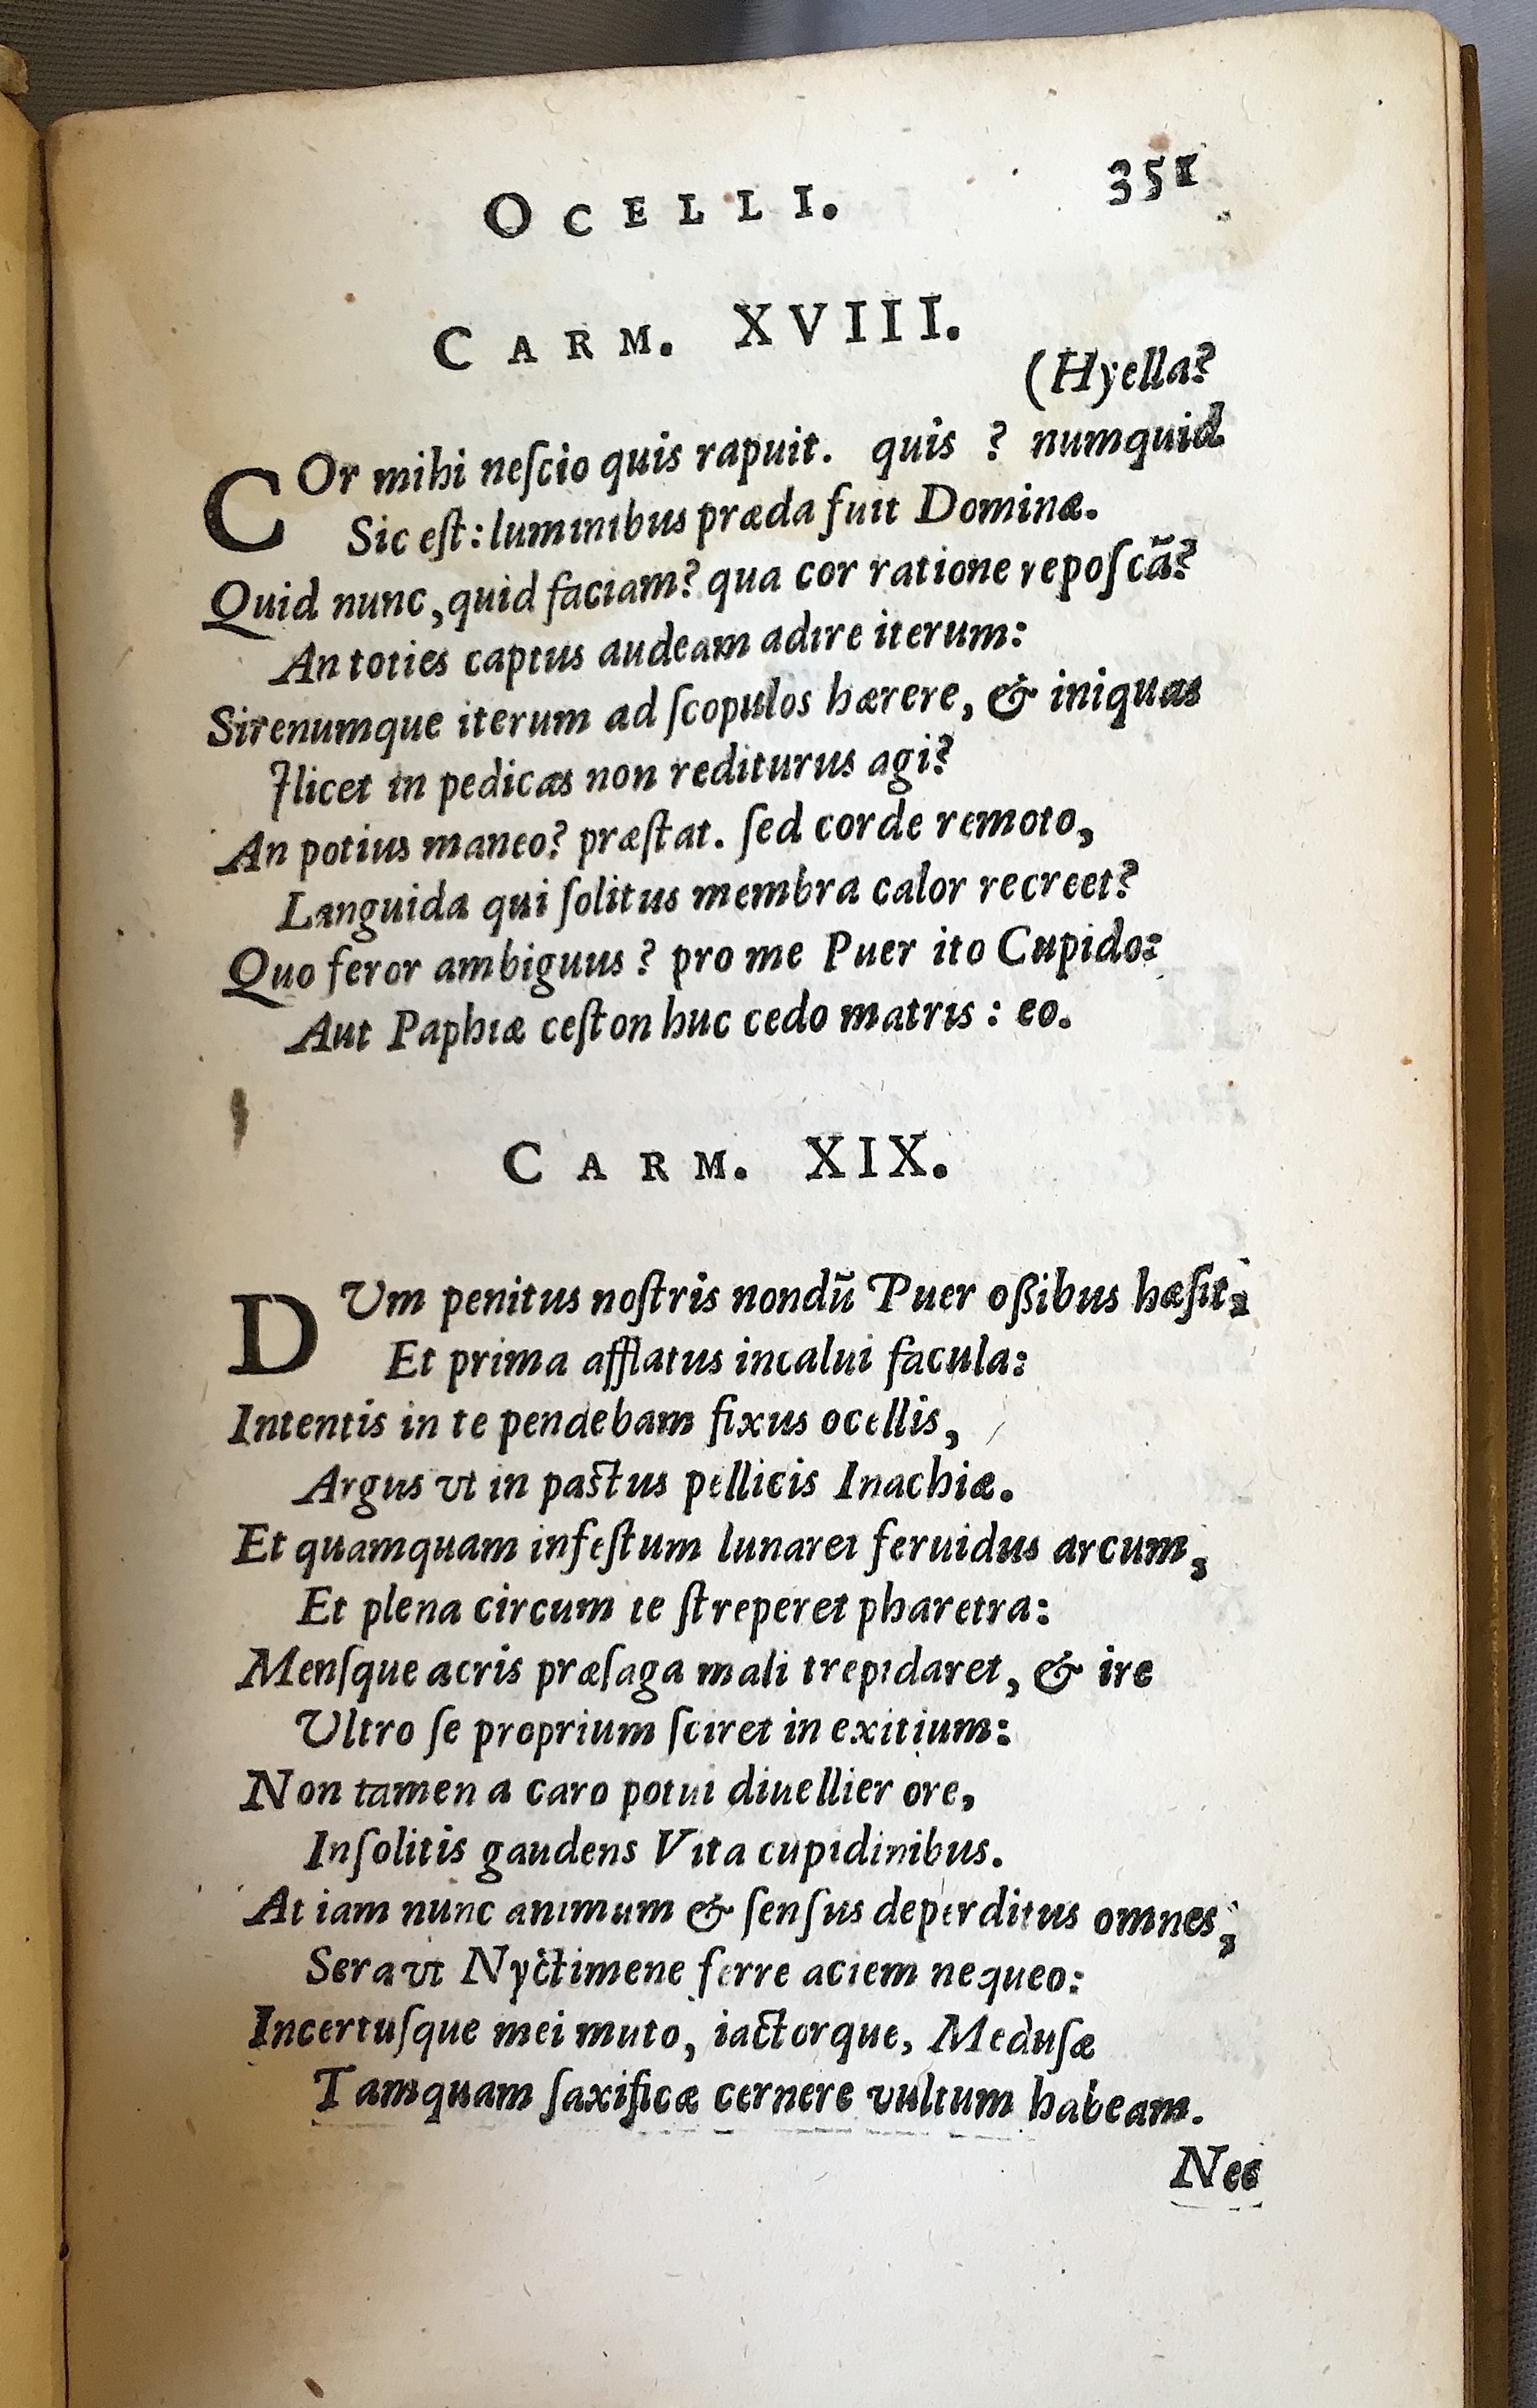 OCELLI. 351
CARM. XVIII.
(Hyella?
COr mihi neſcio quis rapuit. quis ? numquid
Sic eſt: luminibus præda fuit Dominæ.
Quid nunc, quid faciam? qua cor ratione repoſcã?
An toties captus audeam adire iterum:
Sirenumque iterum ad ſcopulos hærere, & iniquas
Ilicet in pedicas non rediturus agi?
An potius maneo? præſtat. ſed corde remoto,
Languida qui ſolitus membra calor recreet?
Quo feror ambiguus ? pro me Puer ito Cupido:
Aut Paphiæ ceſton huc cedo matris : eo.
CARM. XIX.
DVm penitus noſtris nondũ Puer oßibus hæſit,
Et prima afflatus incalui facula:
Intentis in te pendebam fixus ocellis,
Argus vt in paſtus pellicis Inachiæ.
Et quamquam infeſtum lunaret feruidus arcum,
Et plena circum te ſtreperet pharetra:
Menſque acris præſaga mali trepidaret, & ire
Vltro ſe proprium ſciret in exitium:
Non tamen a caro potui diuellier ore,
Inſolitis gaudens Vita cupidinibus.
At iam nunc animum & ſenſus deperditus omnes,
Sera vt Nyctimene ferre aciem nequeo:
Incertuſque mei muto, iactorque, Meduſæ
Tamquam ſaxificæ cernere vultum habeam.
Nec